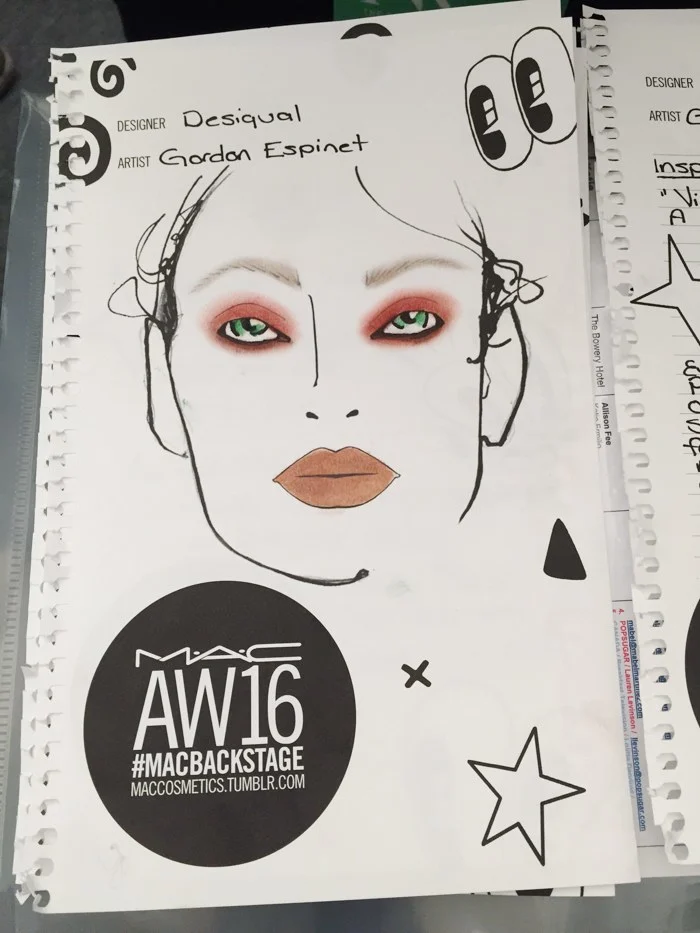 DESIGNER Desiqual
ARTIST Gordon Espinet
M·A·C
AW16
#MACBACKSTAGE
MACCOSMETICS.TUMBLR.COM
DESIGNER
ARTIST G
Insp
"Vi
A
The Bowery Hotel
Allison Fee
4.
mabel@mabelmartinez.com
POPSUGAR / Lauren Levinson / llevinson@popsugar.com